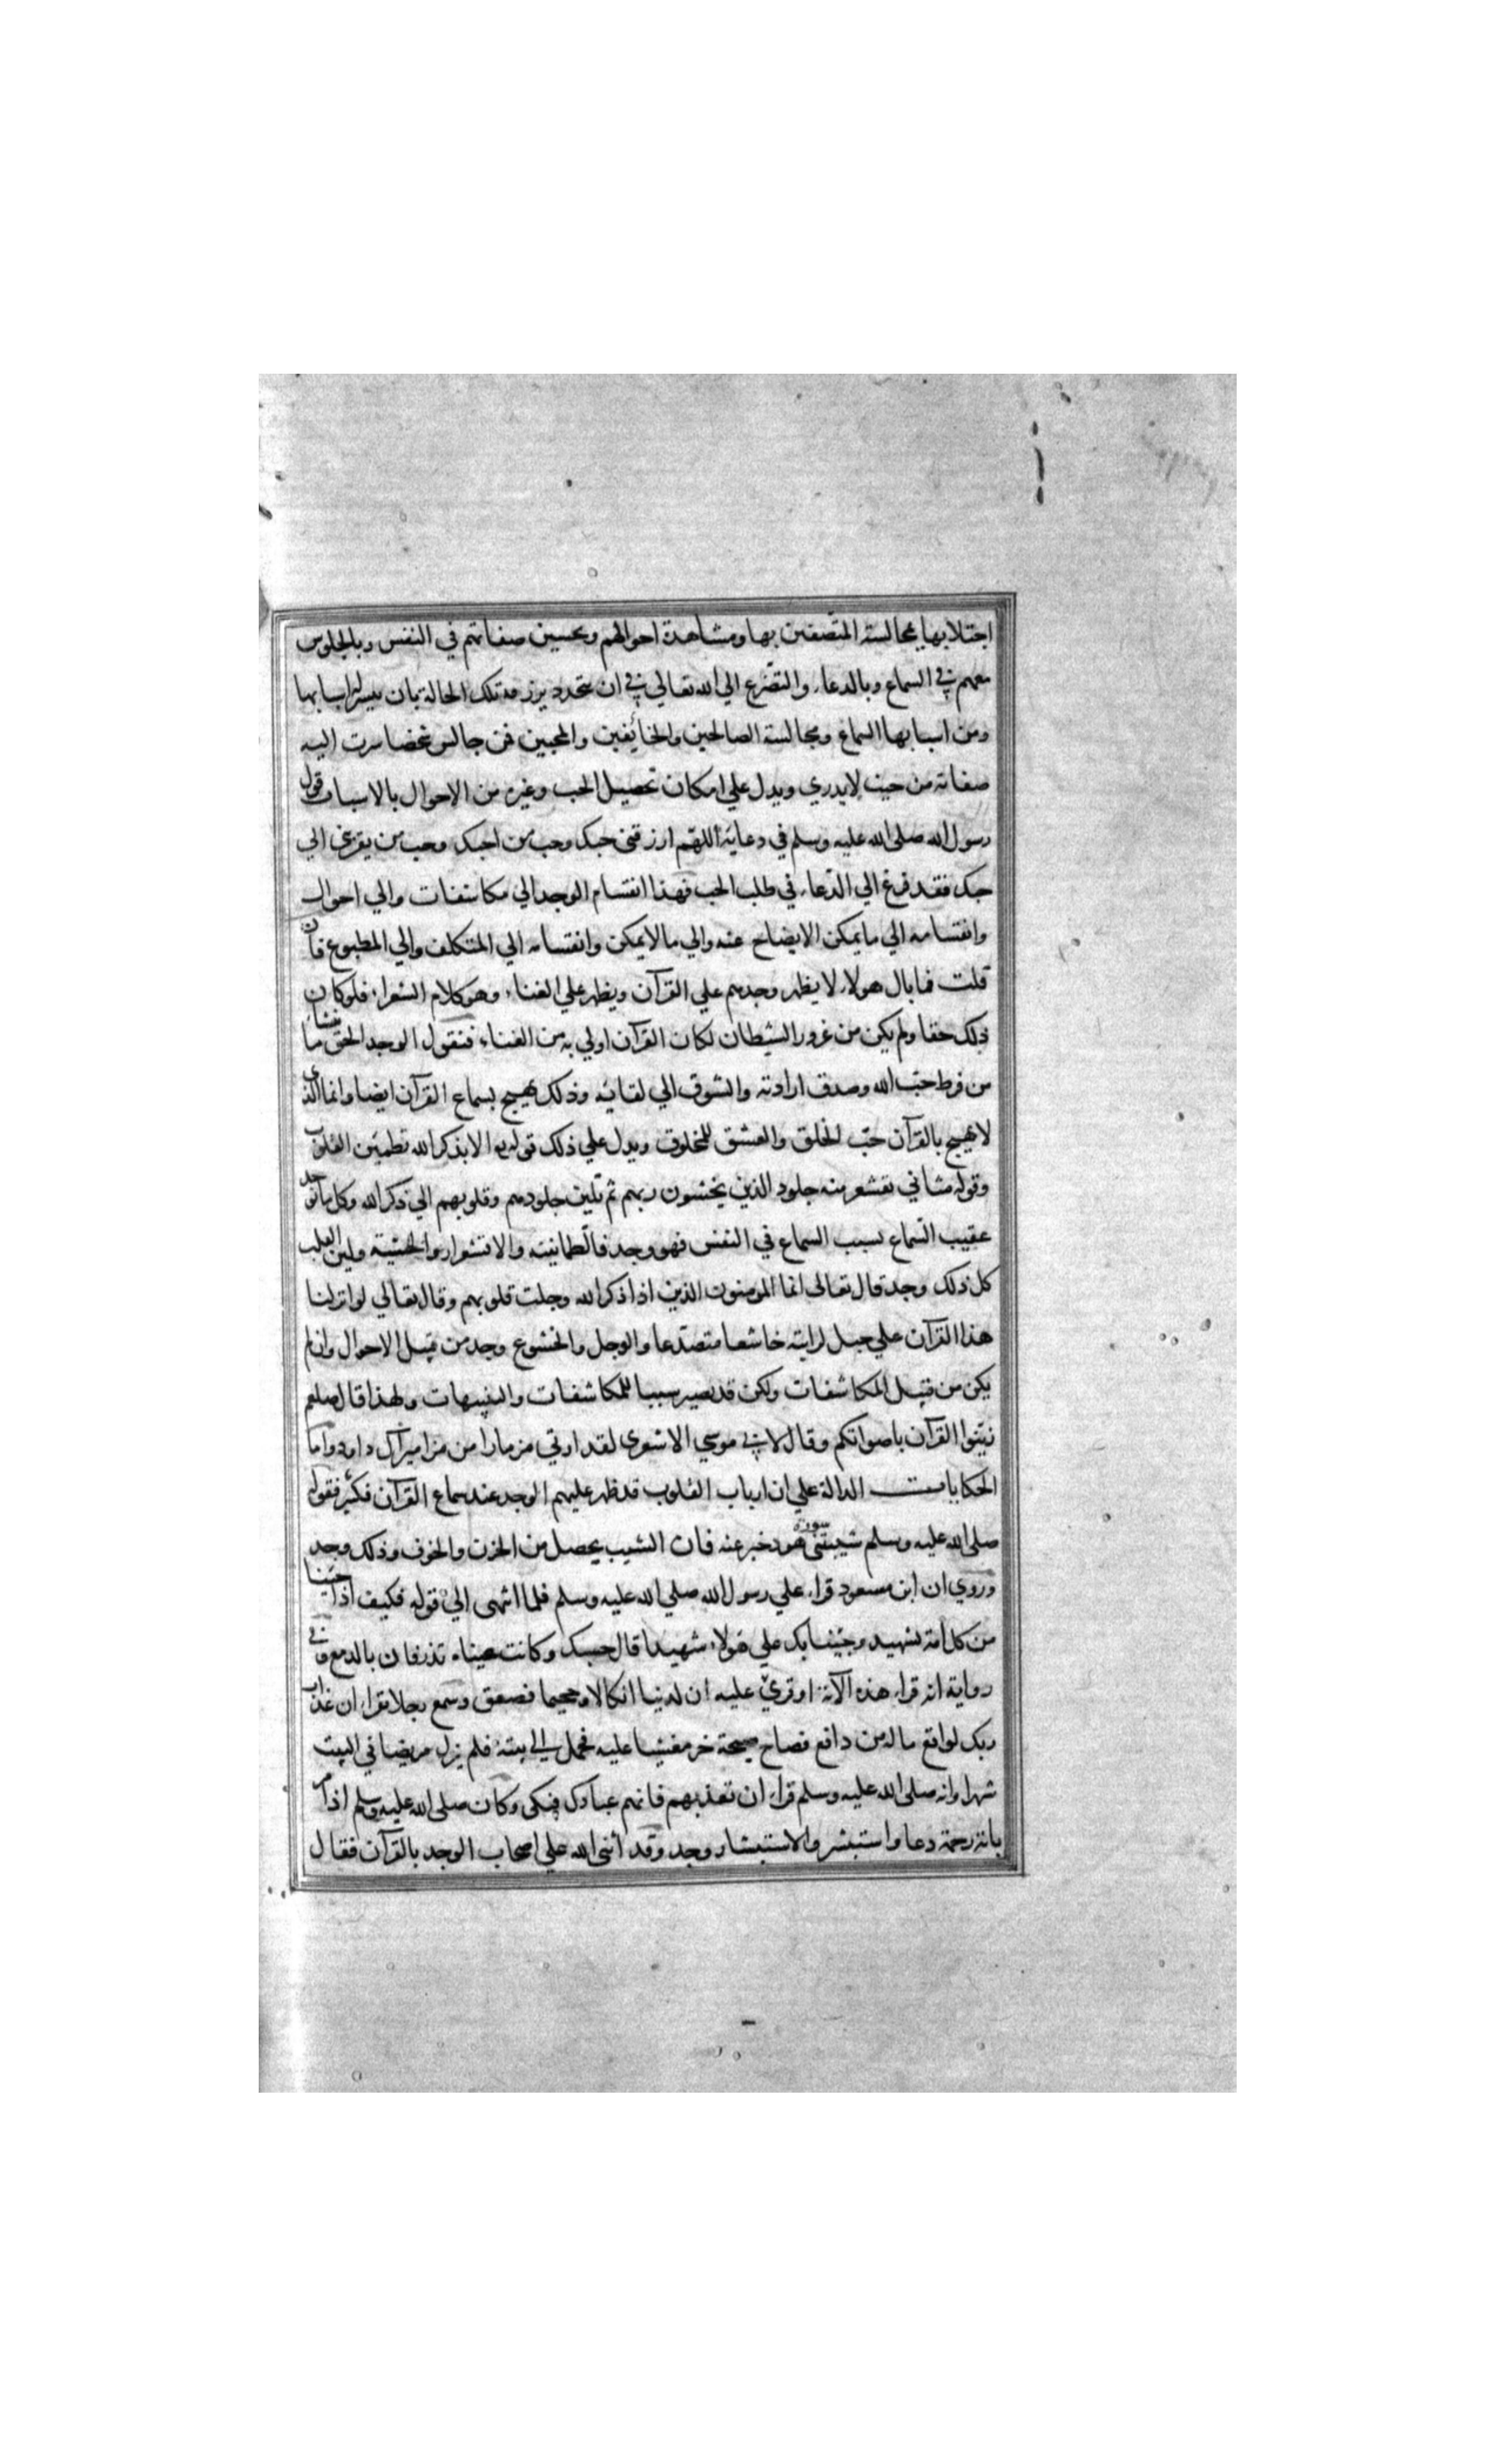 اجتلابها بمجالسة المتصفين بها ومشاهدة احوالهم وتحسين صفاتهم في النفس وبالجلوس
معهم في السماع وبالدعاء والتضرع الي الله تعالي في ان تلك الحالة بان ييسر له اسبابها
ومن اسبابها السماع ومجالسة الصالحين والخائفين والمحبين فمن جالس شخصا سرت اليه
صفاته من حيث لا يدري ويدل علي امكان تحصيل الحب وغيره من الاحوال بالاسباب قول
رسول الله صلى الله عليه وسلم في دعائه اللهم ارزقني حبك وحب من احبك وحب من يقربني الي
حبك فقد فزع الي الدعاء في طلب الحب فهذا انقسام الوجد الي مكاشفات والي احوال
وانقسامه الي ما يمكن الايضاح عنه والي ما لا يمكن وانقسامه الي المتكلف والي المطبوع فان
قلت فما بال هولاء لا يظهر وجدهم علي القرآن ويظهر علي الغناء وهو كلام الشعراء فلو كان
ذلك حقا ولم يكن من غرور الشيطان لكان القرآن اولي به من الغناء فنقول الوجد الحق ما ينشا
من فرط حب الله وصدق ارادته والشوق الي لقائه وذلك يهيج بسماع القرآن ايضا وانما الذي
لا يهيج بالقرآن حب الخلق والعشق للمخلوق ويدل علي ذلك قوله الا بذكر الله تطمئن القلوب
وقوله مثاني تقشعر منه جلود الذين يخشون ربهم ثم تلين جلودهم وقلوبهم الي ذكر الله وكل ما توجد
عقيب السماع بسبب السماع في النفس فهو وجد فالطمانينة والاقشعرار والخشية ولين القلب
كل ذلك وجد قال تعالى انما المومنون الذين اذا ذكر الله وجلت قلوبهم وقال تعالي لو انزلنا
هذا القرآن علي جبل لرايته خاشعا متصدعا والوجل والخشوع وجد من قبيل الاحوال وان لم
يكن من قبيل المكاشفات ولكن قد يصير سببا للمكاشفات والتنبيهات ولهذا قال صلعم
زينوا القرآن باصواتكم وقال لابي موسي الاشعري لقد اوتي مزمارا من مزامير آل داود واما
الحكايات الدالة علي ان ارباب القلوب قد ظهر عليهم الوجد عند سماع القرآن فكثير فقوله
صلى الله عليه وسلم شيبتني سورة هود خبر عنه فان الشيب يحصل من الحزن والخوف وذلك وجد
وروي ان ابن مسعود قراء علي رسول الله صلي الله عليه وسلم فلما انتهى الي قوله فكيف اذا جئنا
من كل امة بشهيد وجئنا بك علي هولاء شهيدا قال حسبك وكانت عيناه تذرفان بالدمع وفي
رواية انه قراء هذه الآية او قرئ عليه ان لدينا انكالا وجحيما فصعق وسمع رجلا يقراء ان عذاب
ربك لواقع ما له من دافع فصاح صيحة خر مغشيا عليه فحمل الي بيته فلم يزل مريضا في البيت
شهرا وانه صلى الله عليه وسلم قراء ان تعذبهم فانهم عبادك فبكى وكان صلى الله عليه وسلم اذا مر
باية رحمة دعا واستبشر والاستبشار وجد وقد أثنى الله علي اصحاب الوجد بالقرآن فقال